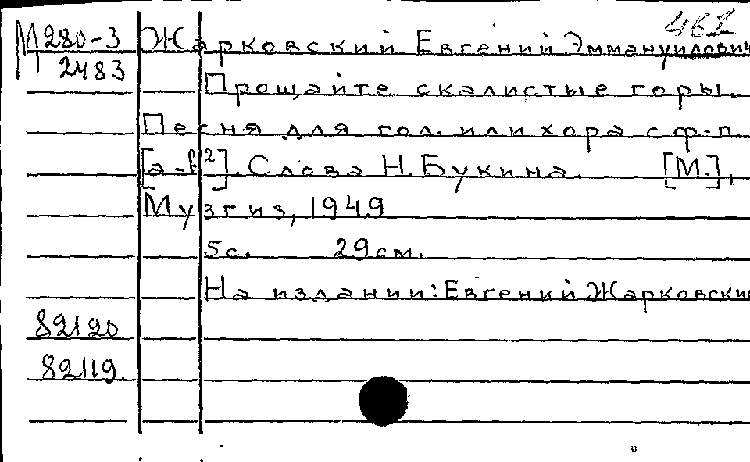 462
М 280-3 Жарковский Евгений Эммануилович
2483
Прощайте скалистые горы.
Песня для гол. или хора с ф-п.
[a-f²]. Слова Н. Букина. [М.],
Музгиз, 1949
5 с. 29 см.
На издании: Евгений Жарковский
82120
82119.